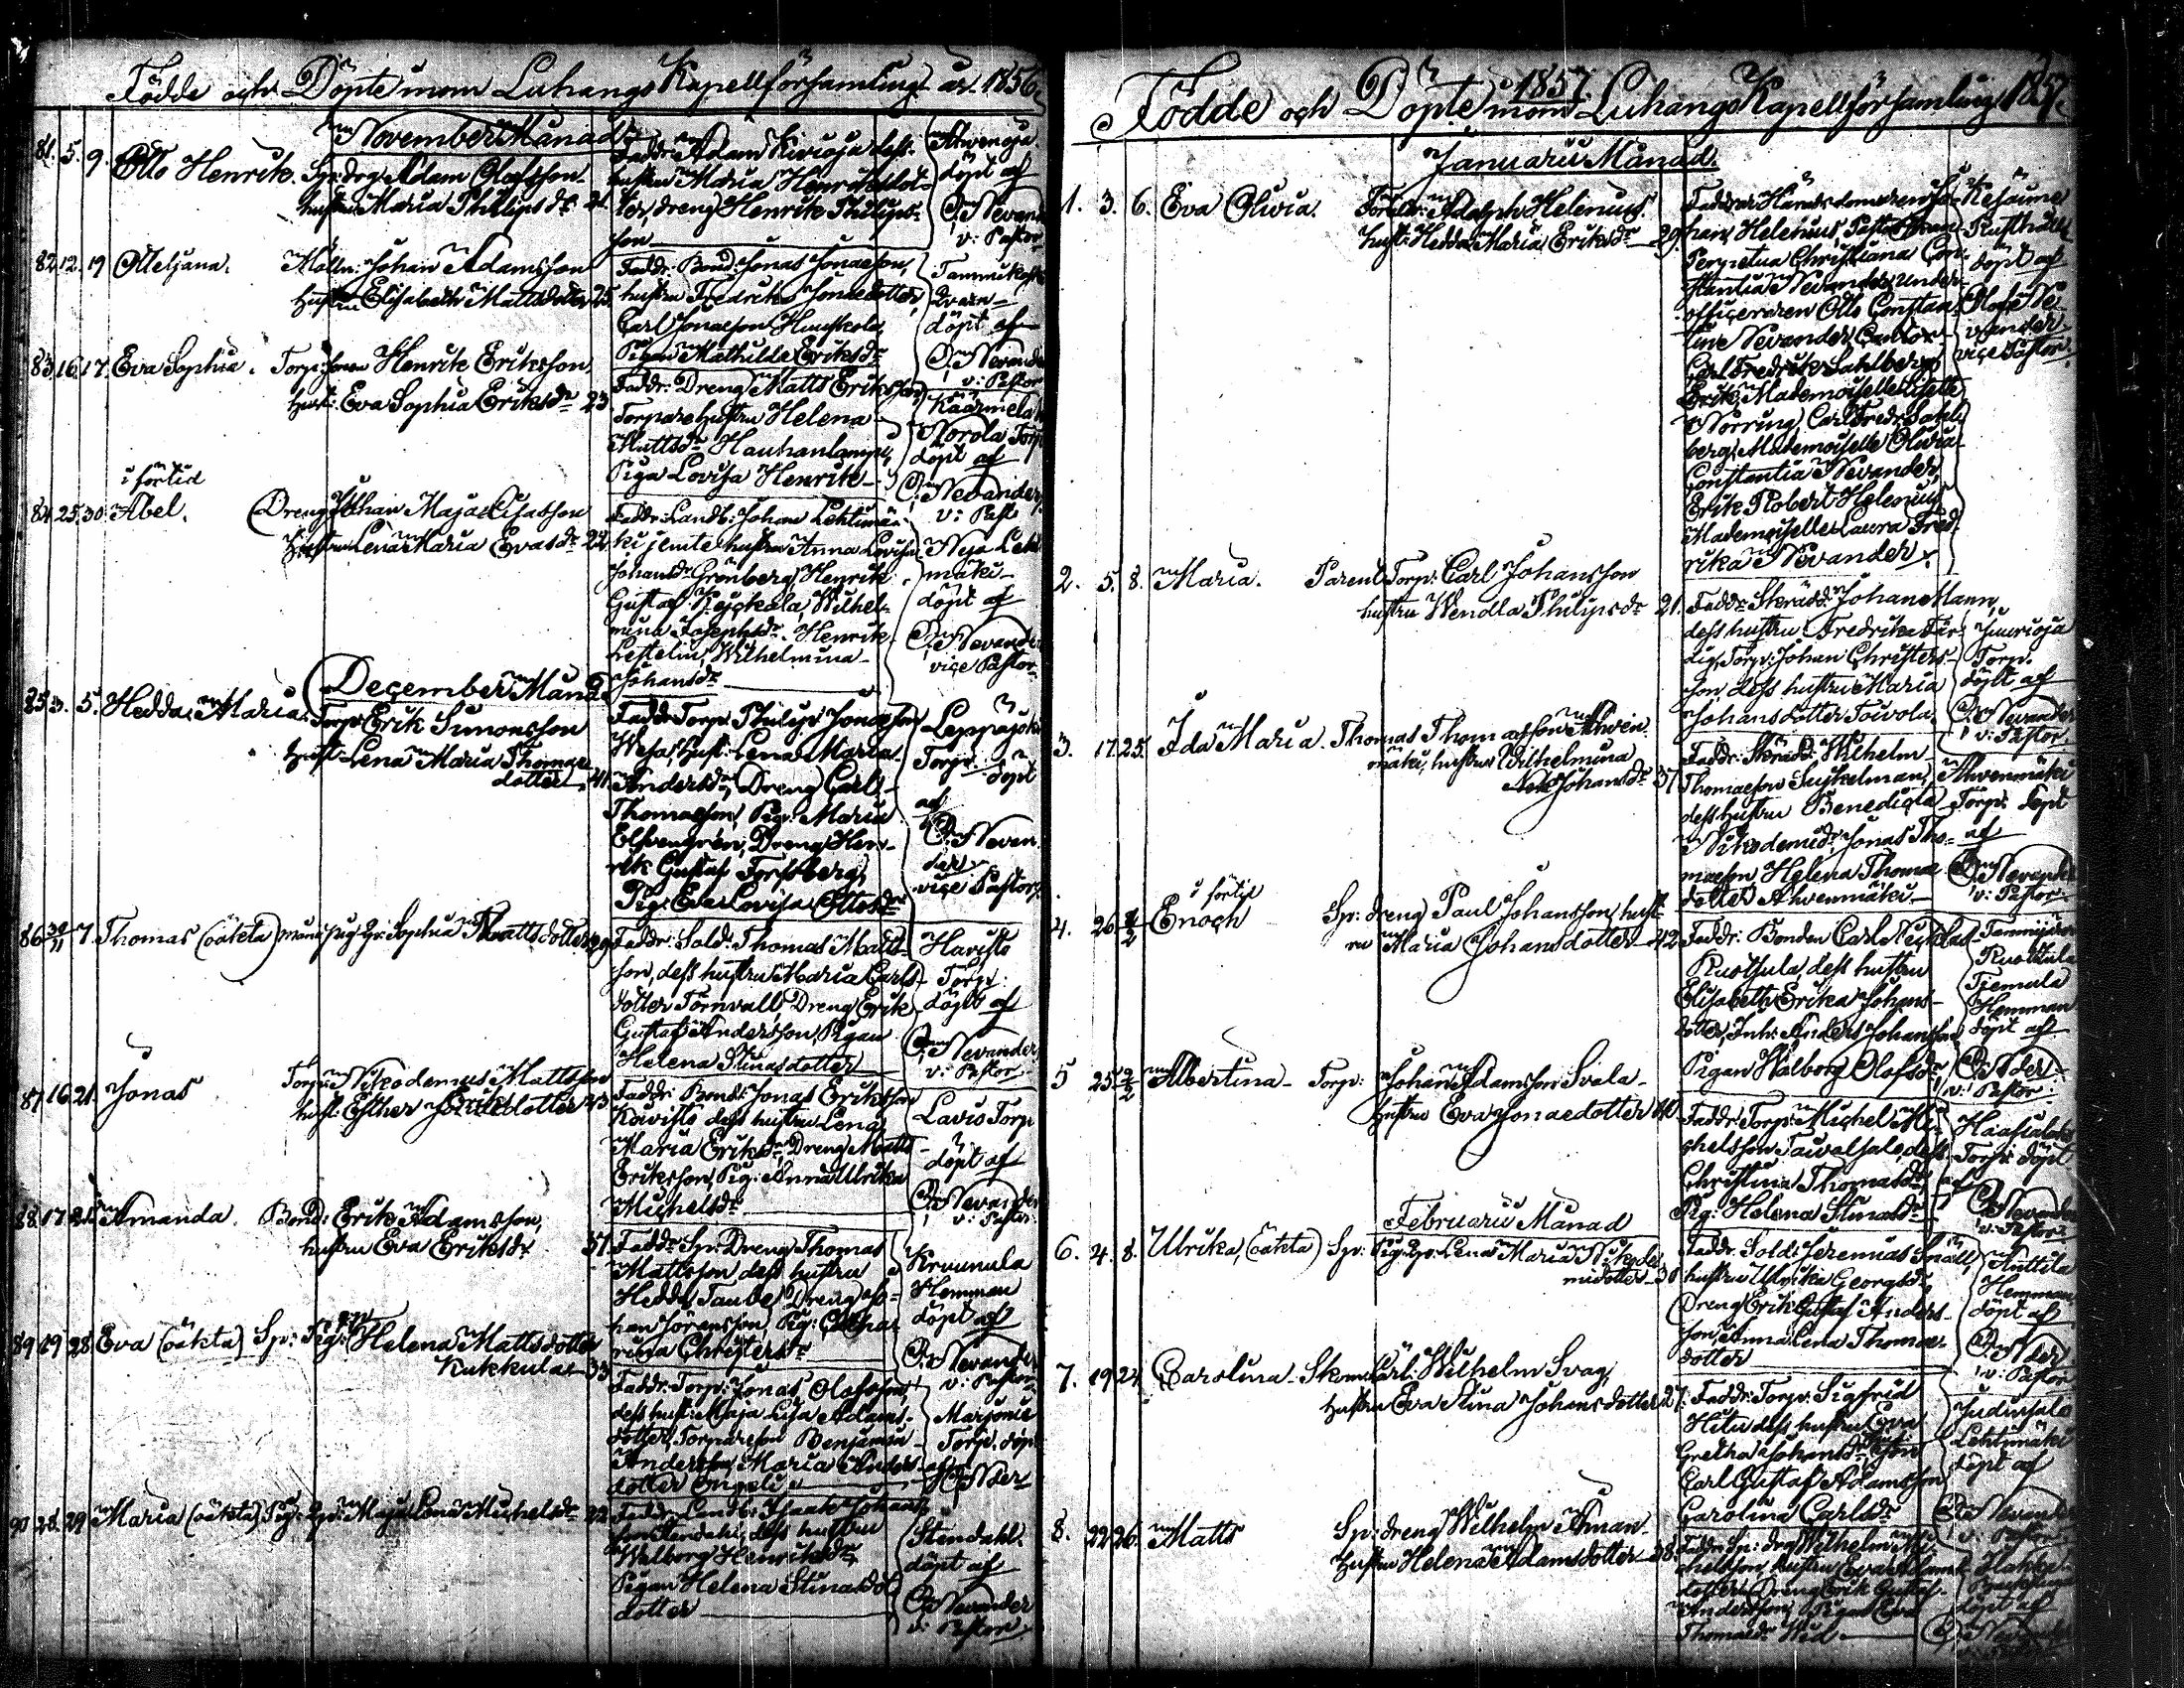 Födde och Döpte inom Luhango Kapellförsamling år 1856.
November Månad
81. 5. 9. Otto Henrik. Sp: drg: Adam Olofsson
hustru Maria Philips dr 21.
Faddr: Adam Kivioja dess
hustru Maria Henriksdot-
ter, dreng Henrik Philips-
son
Ahvenoja
döpt af
O. Nevander
v: Pastor
82. 12. 19 Meljana. Mölln: Johan Adamsson
hustru Elisabeth Mattsdotter 25.
Faddr: Bond: Jonas Jonasson,
hustru Fredrika Jonaedotter,
Carl Jonasson
Pigan Mathilda Eriksdr
döpt af
O. Nevander
v: Pastor
83. 16. 17. Eva Sophia. Torp: Henrik Eriksson
hust: Eva Sophia Eriksdr 23
Faddr: Dreng Matts Eriksson
Torpare hustru Helena
Mattsdr Hauhanlampi,
Piga Lovisa Henrik-
Torp
döpt af
O. Nevander
v: Past
i förtid
84. 25. 30 Abel. Dreng Johan Majalisasson
hustru Lena Maria Evasdr 22
Faddr: Landb: Johan Lehtimä-
ki jemte hustru Anna Lovisa
Johansdr Grönberg, Henrik
Gustaf Wilhel-
mina Josephsdr. Henrik
Lestelin, Wilhelmina
Johansdr
mäki
döpt af
O. Nevander
vice Pastor
December Månad
85. 3. 5. Hedda Maria. Torp: Erik Simonsson
hust: Lena Maria Thomae
dotter 41.
Faddr: Torp: Philip Jonasson
Wesa, hust: Lena Maria
Andersdr, Dreng Carl
Thomasson, Pig: Maria
Elfvengren, Dreng Hen-
rik Gustaf Forsberg,
Pig: Eva Lovisa Ottosdr
Torp. döpt
af
O. Nevan-
der
vice Pastor
86. 30/11 7. Thomas (oäkta) Sophia Mattsdotter 29
Faddr: Sold: Thomas Matts-
son, dess hustru Maria Carls-
dotter Törnvall, Dreng Erik
Gustaf Andersson, Pigan
Helena Stinasdotter
Havisto
Torp:
döpt af
O. Nevander
v: Pastor
87. 16. 21. Jonas Torp: Nikodemus Mattsson
hust: Esther 43
Faddr: Bond: Jonas Eriksson
Koivisto dess hustru Lena
Maria Eriksdr, Dreng Matts
Eriksson, Pig: Anna Ulrika
Michelsdr
Lavis Torp
döpt af
O. Nevander
v: Pastor
88. 17. 21. Amanda. Bond: Erik Adamsson,
hustru Eva Eriksdr 37.
Faddr: Sp: Dreng Thomas
Mattsson dess hustru
Hedda Taube, Dreng Jo-
han Jöransson, Pig: Catha-
rina Christersdr
Hemman
döpt af
O. Nevander
v: Pastor
89. 19. 28. Eva (oäkta) Sp: Pig: Helena Mattsdotter
Kukkula 33
Faddr: Torp: Jonas Olofsson,
dess hust: Maja Lisa Adams-
dotter, Torpareson Benjamin
Andersson, Maria Anders-
dotter
Torp. döpt
af O. Nder
90. 28. 29. Maria (oäkta) Pig: Maja Lena Michelsdr 22
Faddr: Landb: Isaak Johans-
son Stendahl, dess hustru
Walborg Henriksdr,
Pigan Helena Stinas-
dotter
Stendahl
döpt af
O. Nevander
v: Pastor
1857.
Födde och Döpte inom Luhango Kapellförsamling 1857.
Januarii Månad.
1. 3. 6. Eva Olivia. Adolph Helenius
hust: Hedda Maria Eriksdr 29.
Faddrar Häradsdomaren Jo-
han Helenius,
Perpetua Christiana Con-
stantia Nevander, Under-
officeraren Otto Constan-
tin Nevander, Cantor
Carl Fredrik Sahlberg,
Erik, Mademoiselle
Norring, Carl Fredr: Sahl-
berg, Mademoiselle Olivia
Constantia Nevander,
Erik Robert Helenius
Mademoiselle Laura Fred-
rika Nevander
Rusthåll
döpt af
Olof Ne-
vander
vice Pastor.
2. 5. 8. Maria. Torp: Carl Johansson
hustru Wendla Philipsdr 21.
Faddr: Skrädd: Johan Mann,
dess hustru Fredrika Fär-
dig, Torp: Johan Christers-
son, dess hustru Maria
Johansdotter Toivola.
Torp.
döpt af
O. Nevander
v: Pastor
3. 17. 25. Ida Maria. Thomas Thomasson Ahven-
mäki, hustru Wilhelmina
Johansdr 37
Faddr: Skrädd: Wilhelm
Thomasson
dess hustru Benedicta
Nikodemidr, Jonas Tho-
masson, Helena Thomae
dotter Ahvenmäki
Ahvenmäki
Torp. döpt
af
O. Nevander
v: Pastor
i förtid
4. 26. 1/2 Enoch Sp: dreng Paul Johansson, hust-
ru Maria Johansdotter 42
Faddr: Bonden Carl
Rusthula, dess hustru
Elisabeth Erika Johans-
dotter, Inh: Anders Johansson
Pigan Walborg Olofsdr
Hemman
döpt af
O. Nder
v: Pastor
5 25. 2/2 Albertina Torp: Johan Adamsson Svala
hustru Eva Jonaedotter 40
Faddr: Torp: Michel Mi-
chelsson dess
Christina Thomasdr
Pig: Helena Stinasdr
Torp. döpt
af
O. Nevander
v: Pastor
Februarii Månad
6. 4. 8. Ulrika, (oäkta) Sp: Pig: Lena Maria Nikode-
midotter 30
Faddr: Sold: Jeremias Snäll,
hustru Ulrika Georgsdr,
Dreng Erik Gustaf Anders-
son, Anna Lena Thomae-
dotter
Anttila
Hemman
döpt af
O. Nder
v: Pastor
7. 19. 24. Carolina Carl Wilhelm Svag,
hustru Eva Stina Johansdotter 27.
Faddr: Torp: Sigfrid
dess hustru Eva
Gretha Johansdr
Carl Gustaf Adamsson
Carolina Carlsdr
Lehtimäki
döpt af
O. Nevander
v: Pastor
8. 22. 26. Matts Sp: dreng Wilhelm Åman
hustru Helena Adamsdotter 38.
Faddr: Sp: drg Wilhelm Mi-
chelsson, hustru Eva Adams-
dotter, Dreng Erik Gustaf
Andersson, Pigan Eva
Thomasdr
döpt af
O. Nevander